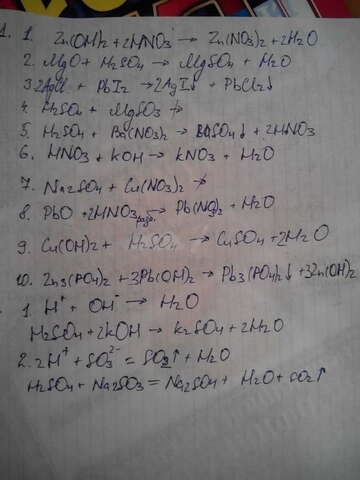 1. 1. Zn(OH)2 + 2HNO3 → Zn(NO3)2 + 2H2O
2. MgO + H2SO4 → MgSO4 + H2O
3. 2AgCl + PbI2 → 2AgI↓ + PbCl2↓
4. H2SO4 + MgSO3 ↛
5. H2SO4 + Ba(NO3)2 → BaSO4↓ + 2HNO3
6. HNO3 + KOH → KNO3 + H2O
7. Na2SO4 + Cu(NO3)2 ↛
8. PbO + 2HNO3 разб. → Pb(NO3)2 + H2O
9. Cu(OH)2 + H2SO4 → CuSO4 + 2H2O
10. Zn3(PO4)2 + 3Pb(OH)2 → Pb3(PO4)2↓ + 3Zn(OH)2
1. H⁺ + OH⁻ → H2O
H2SO4 + 2KOH → K2SO4 + 2H2O
2. 2H⁺ + SO3²⁻ = SO2↑ + H2O
H2SO4 + Na2SO3 = Na2SO4 + H2O + SO2↑